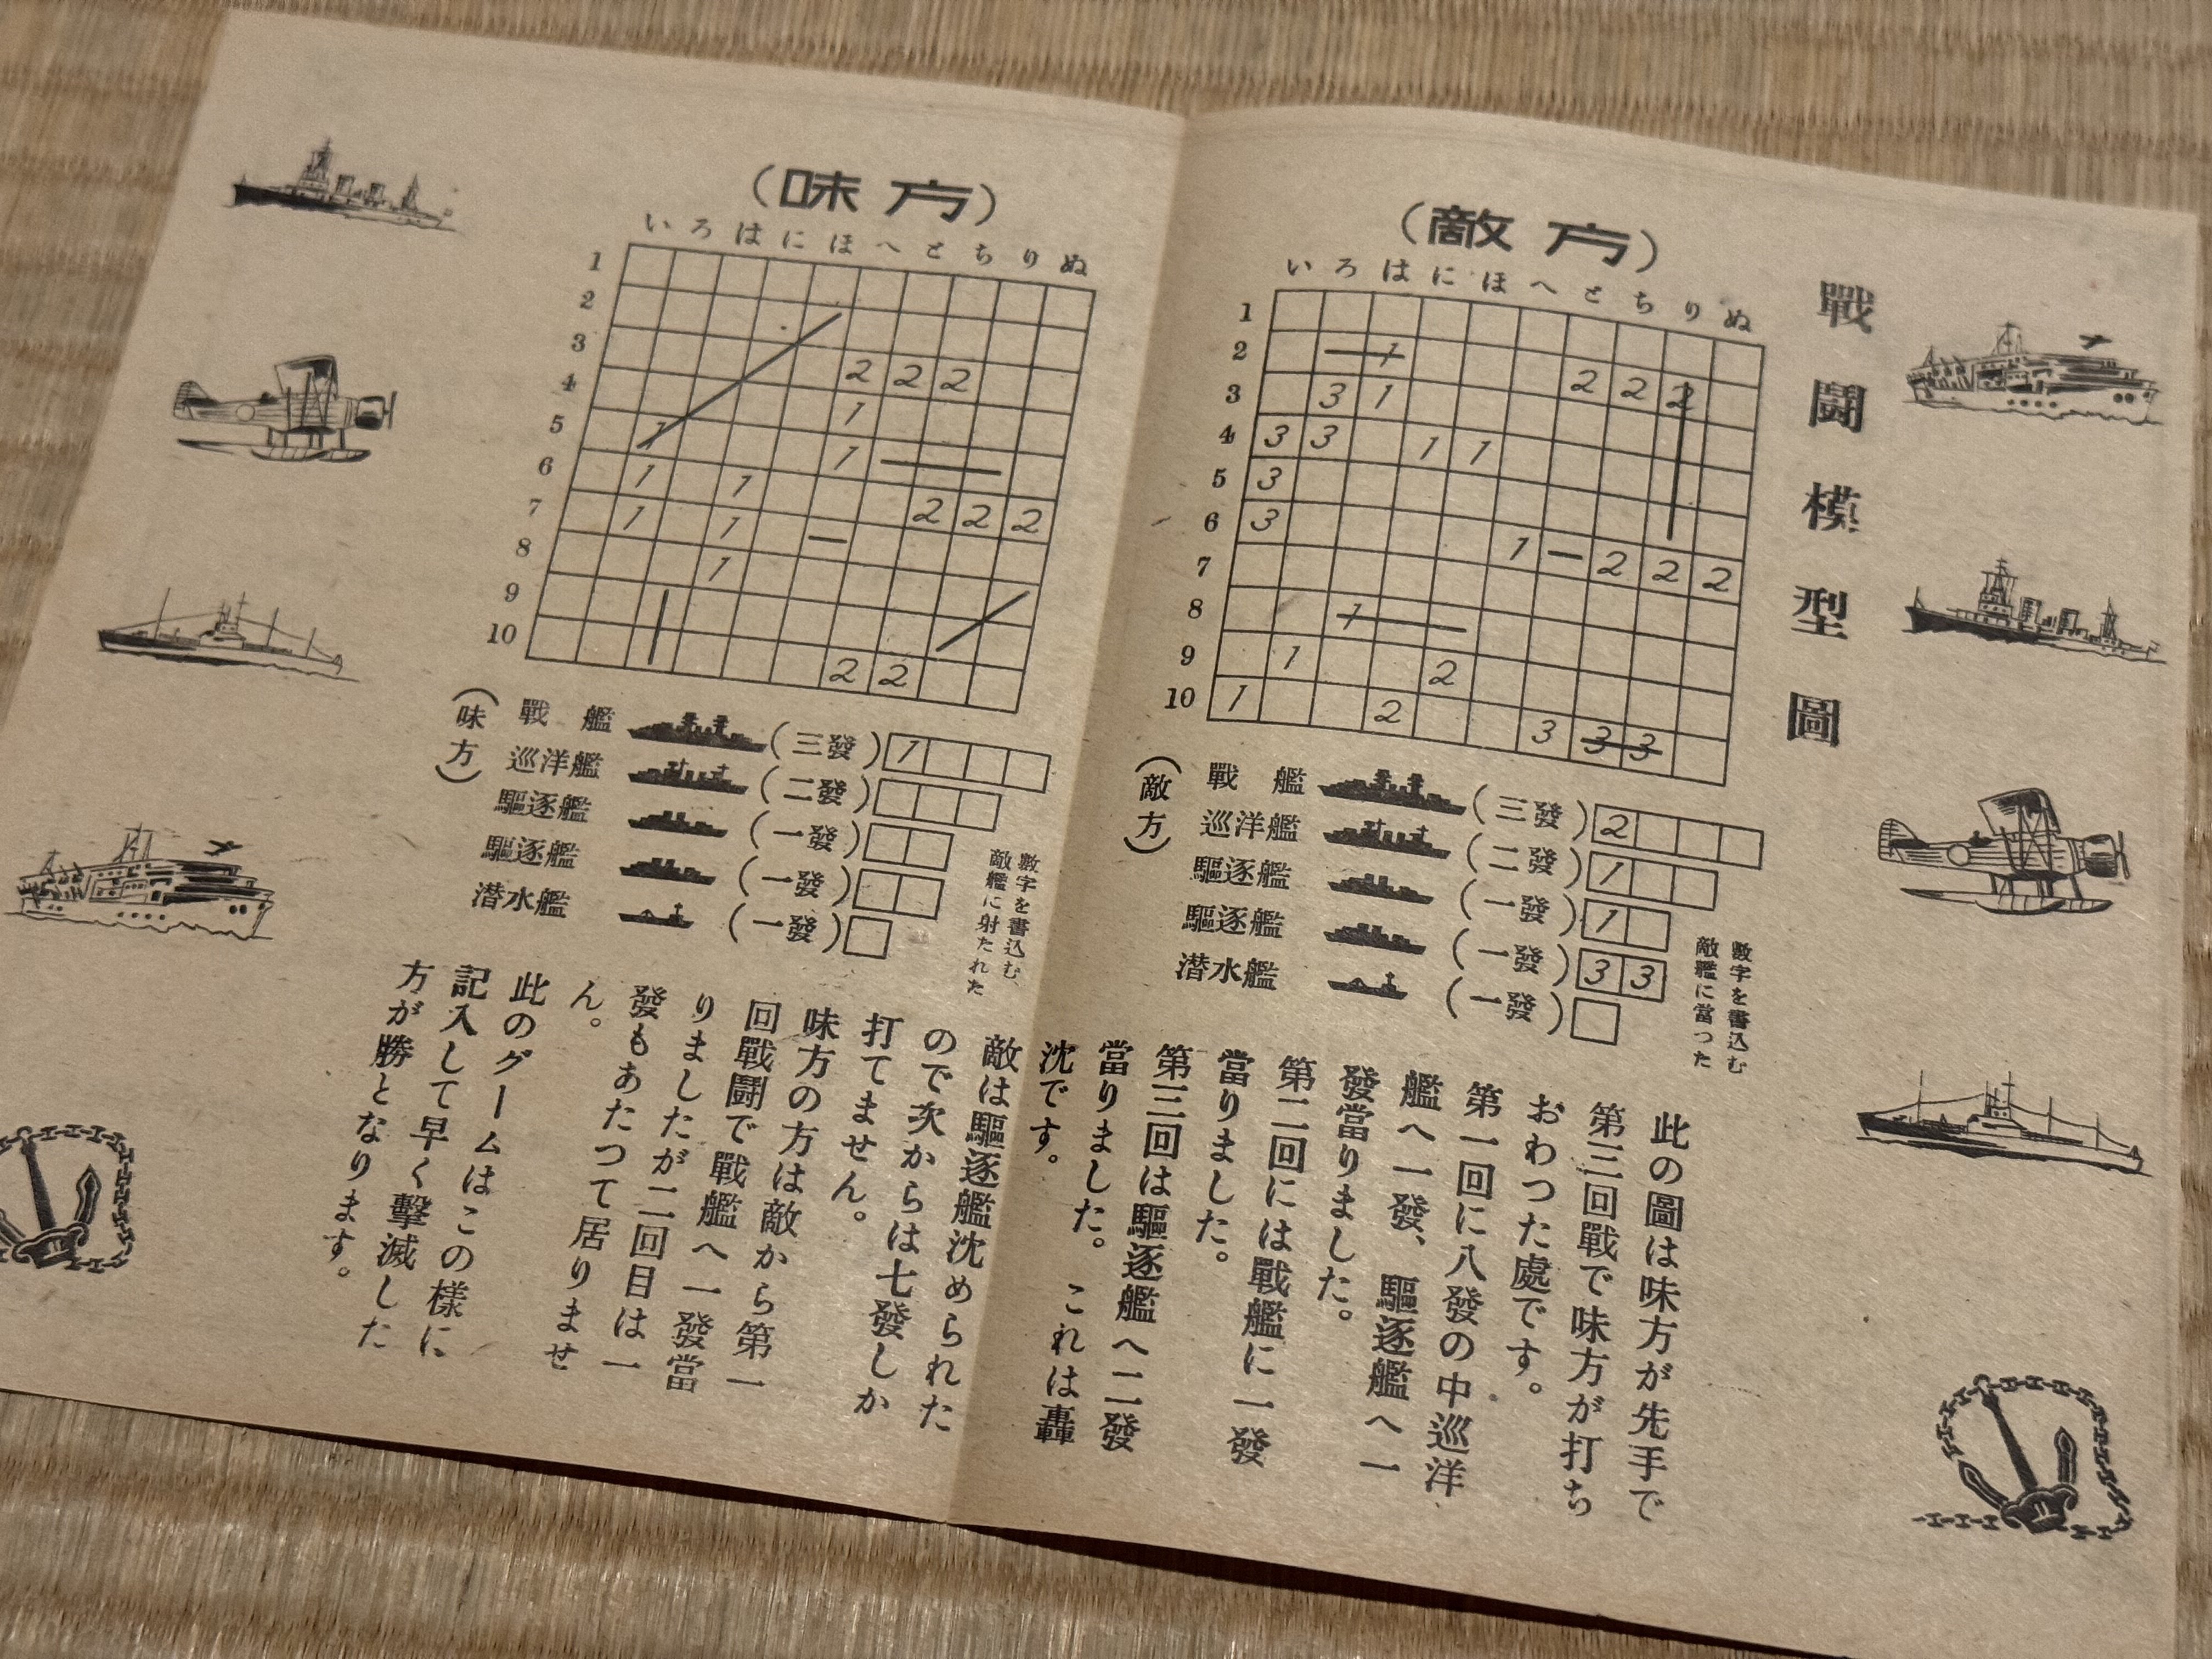 戰鬪模型圖
（敵方）
いろはにほへとちりぬ
1
2 1
3 3 1 2 2 2
4 3 3 1 1
5 3
6 3
7 1 2 2 2
8 1
9 1 2
10 1 2 3 3 3
（敵方）
戰艦（三發）2
巡洋艦（二發）1
驅逐艦（一發）1
驅逐艦（一發）3 3
潜水艦（一發）
數字を書込む
敵艦に當つた
此の圖は味方が先手で
第三回戰で味方が打ち
おわつた處です。
第一回に八發の中巡洋
艦へ一發、驅逐艦へ一
發當りました。
第二回には戰艦に一發
當りました。
第三回は驅逐艦へ二發
當りました。これは轟
沈です。
（味方）
いろはにほへとちりぬ
1
2
3 2 2 2
4 1
5 1 1
6 1 1
7 1 1 2 2 2
8 1
9
10 2 2
（味方）
戰艦（三發）1
巡洋艦（二發）
驅逐艦（一發）
驅逐艦（一發）
潜水艦（一發）
數字を書込む
敵艦に射たれた
敵は驅逐艦沈められた
ので次からは七發しか
打てません。
味方の方は敵から第一
回戰鬪で戰艦へ一發當
りましたが二回目は一
發もあたつて居りませ
ん。
此のグームはこの樣に
記入して早く擊滅した
方が勝となります。